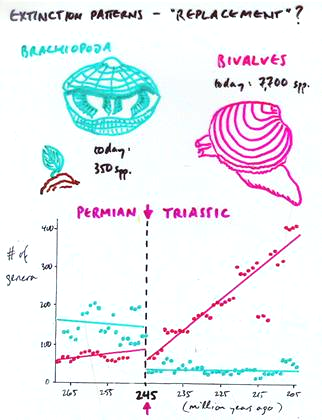 EXTINCTION PATTERNS - "REPLACEMENT"?
BRACHIOPODA
today:
350 spp.
BIVALVES
today: 7,700 spp.
PERMIAN TRIASSIC
# of
genera
400
300
200
100
0
265 255 245 235 225 215 205
(million years ago)